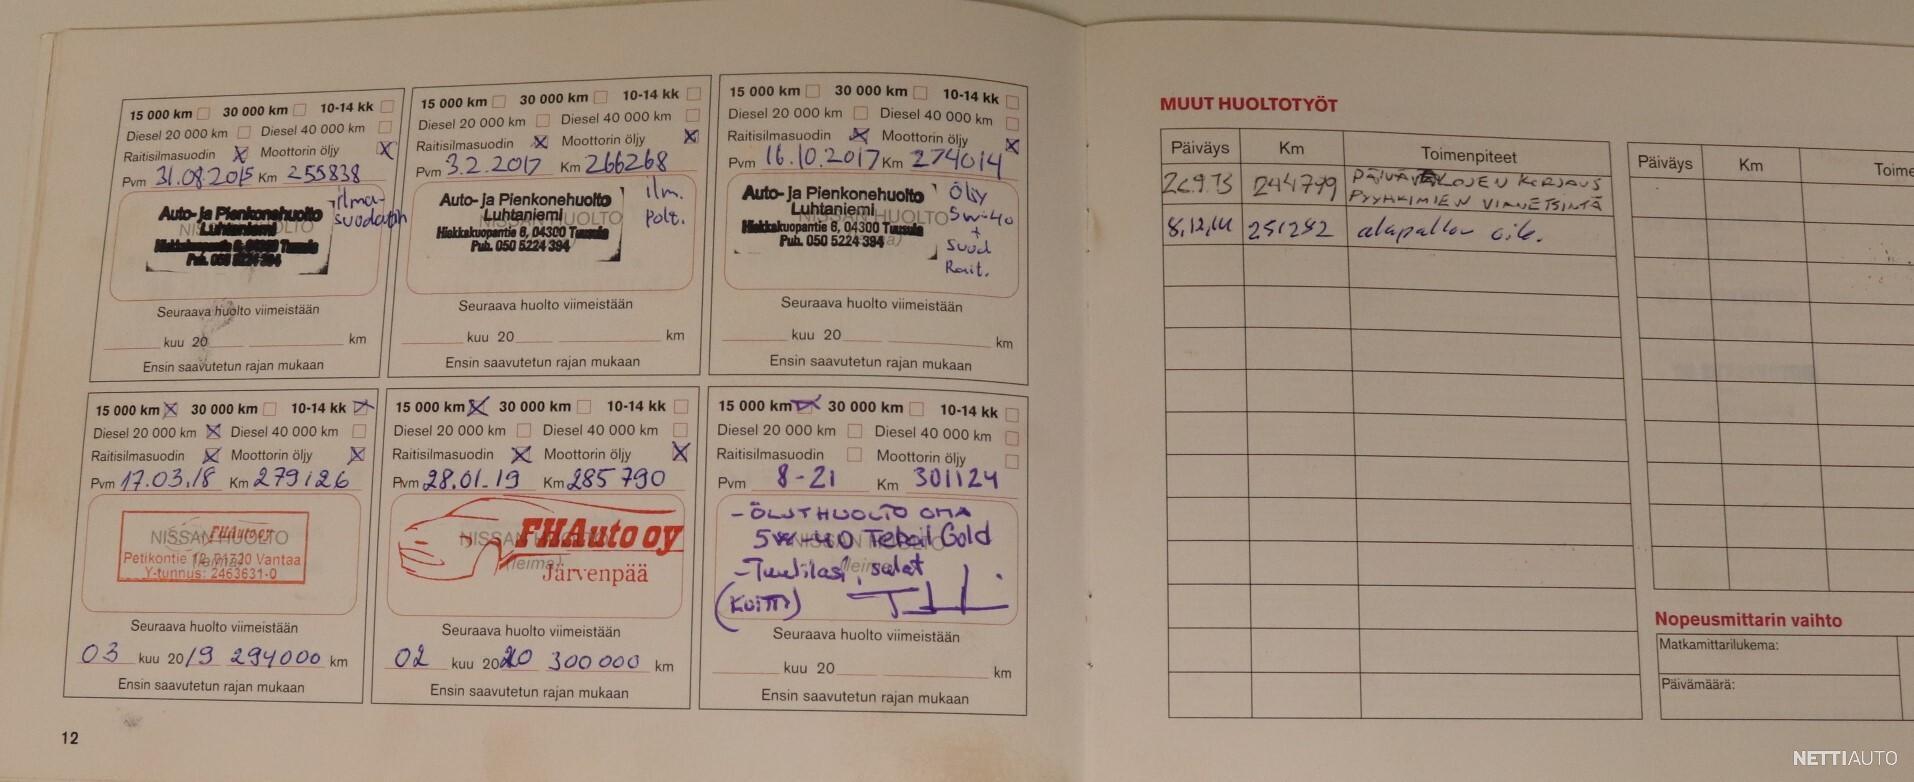 15 000 km 30 000 km 10-14 kk
Diesel 20 000 km Diesel 40 000 km
Raitisilmasuodin Moottorin öljy
Pvm 31.08.2015 Km 255838
ilma-
suodatin
Auto- ja Pienkonehuolto
Luhtaniemi
Hiekkakuopantie 6, 04300 Tuusula
Puh. 050 5224 394
Seuraava huolto viimeistään
kuu 20 km
Ensin saavutetun rajan mukaan
15 000 km 30 000 km 10-14 kk
Diesel 20 000 km Diesel 40 000 km
Raitisilmasuodin Moottorin öljy
Pvm 3.2.2017 Km 266268
Auto- ja Pienkonehuolto
Luhtaniemi
NISSAN HUOLTO
Hiekkakuopantie 6, 04300 Tuusula
Puh. 050 5224 394
ilm.
polt.
Seuraava huolto viimeistään
kuu 20 km
Ensin saavutetun rajan mukaan
15 000 km 30 000 km 10-14 kk
Diesel 20 000 km Diesel 40 000 km
Raitisilmasuodin Moottorin öljy
Pvm 16.10.2017 Km 274014
Auto- ja Pienkonehuolto
Luhtaniemi
NISSAN HUOLTO
Hiekkakuopantie 6, 04300 Tuusula
Puh. 050 5224 394
Öljy
5w-40
+
Suod
Rait.
Seuraava huolto viimeistään
kuu 20 km
Ensin saavutetun rajan mukaan
15 000 km 30 000 km 10-14 kk
Diesel 20 000 km Diesel 40 000 km
Raitisilmasuodin Moottorin öljy
Pvm 17.03.18 Km 279126
NISSAN HUOLTO
FHAuto oy
Petikontie 12, 01720 Vantaa
(leima)
Y-tunnus: 2463631-0
Seuraava huolto viimeistään
03 kuu 2019 294000 km
Ensin saavutetun rajan mukaan
15 000 km 30 000 km 10-14 kk
Diesel 20 000 km Diesel 40 000 km
Raitisilmasuodin Moottorin öljy
Pvm 28.01.19 Km 285 790
FHAuto oy
NISSAN HUOLTO
(leima)
Järvenpää
Seuraava huolto viimeistään
02 kuu 2020 300 000 km
Ensin saavutetun rajan mukaan
15 000 km 30 000 km 10-14 kk
Diesel 20 000 km Diesel 40 000 km
Raitisilmasuodin Moottorin öljy
Pvm 8-21 Km 301124
5w-40 Teboil Gold
NISSAN HUOLTO
(leima)
- Tuulilasi, sulat
(KUITTI)
Seuraava huolto viimeistään
kuu 20 km
Ensin saavutetun rajan mukaan
12
MUUT HUOLTOTYÖT
Päiväys Km Toimenpiteet
244779 PÄIVÄVALOJEN KORJAUS
PYYHKIMIEN VIANETSINTÄ
8.12.14 251292 alapallon oik.
Päiväys Km Toime
Nopeusmittarin vaihto
Matkamittarilukema:
Päivämäärä:
NETTIAUTO